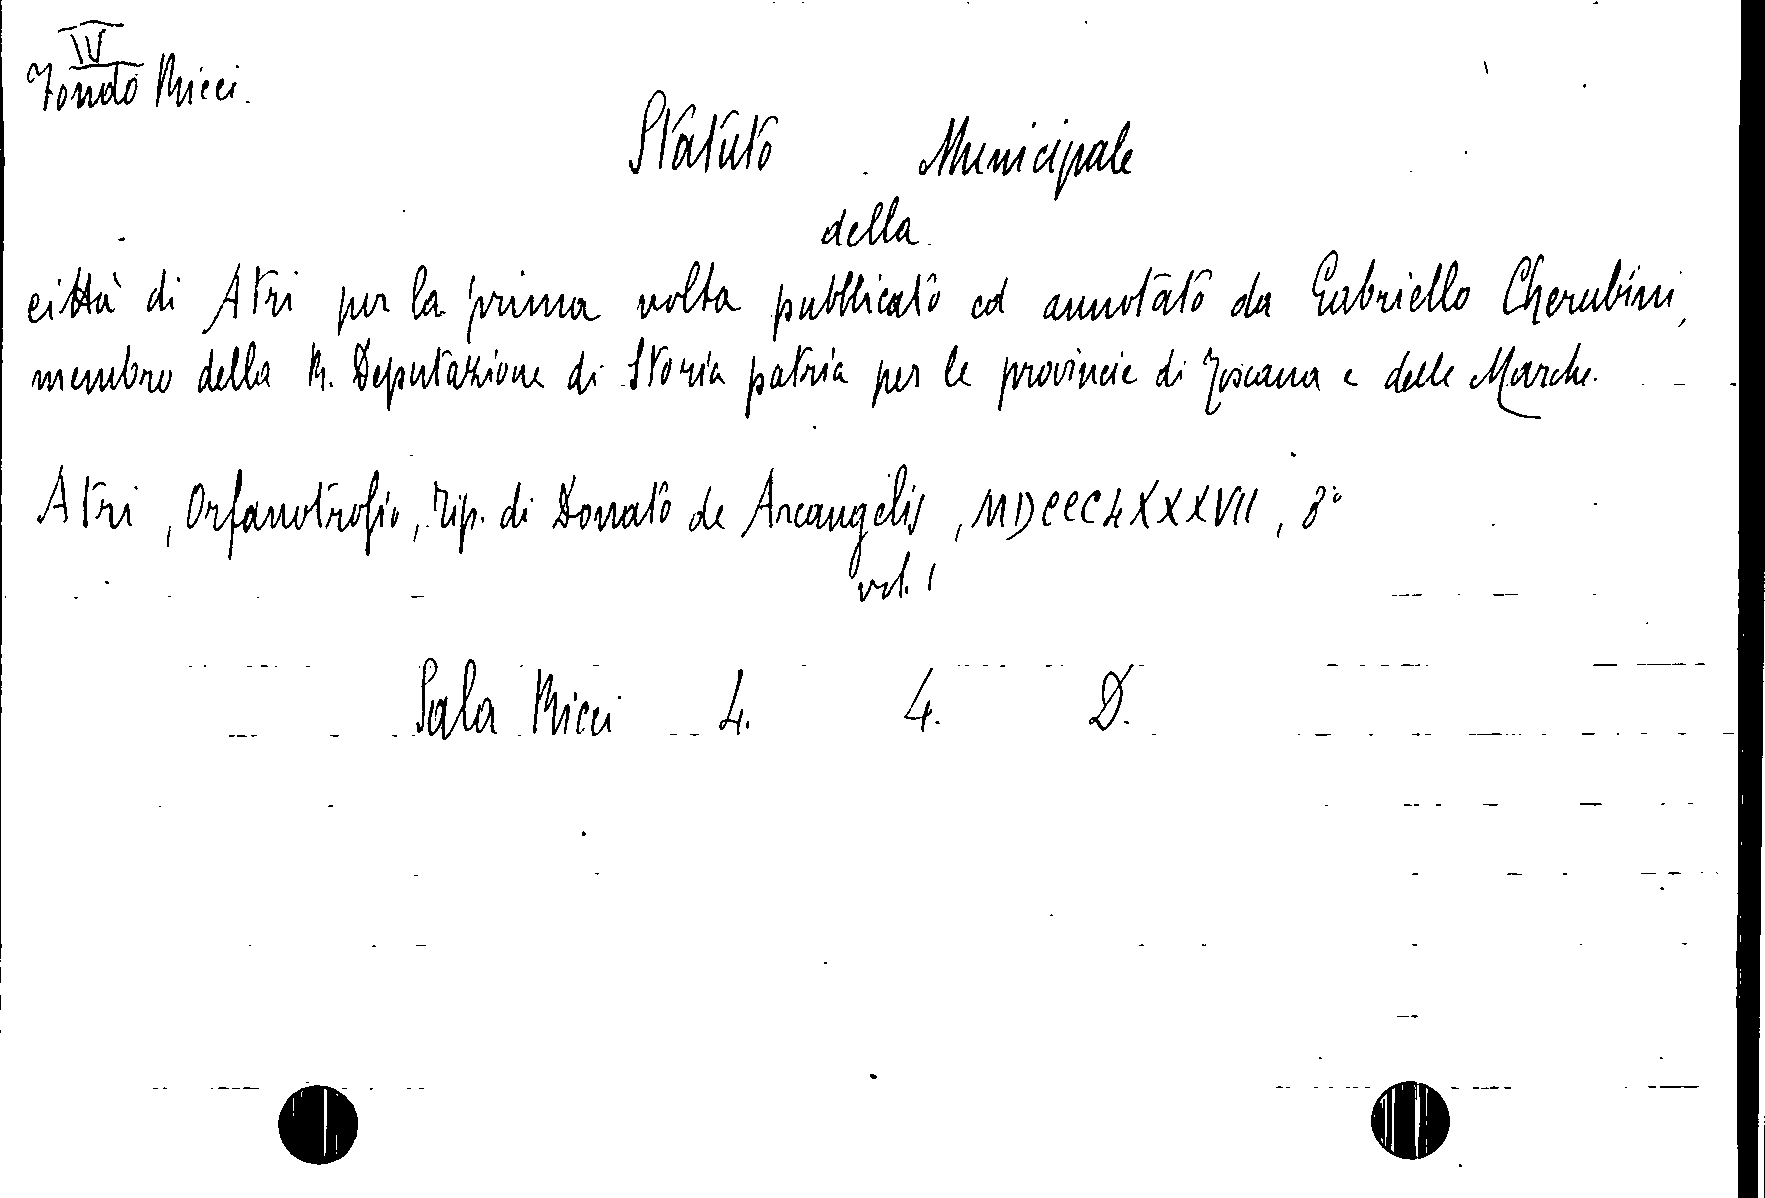 IV
Fondo Ricci.
Statuto Municipale
della
città di Atri per la prima volta pubblicato ed annotato da Gabriello Cherubini,
membro della R. Deputazione di Storia patria per le provincie di Toscana e delle Marche.
Atri, Orfanotrofio, Tip. di Donato de Arcangelis, MDCCCLXXXVII, 8°
vol. 1
Sala Ricci 4. 4. D.